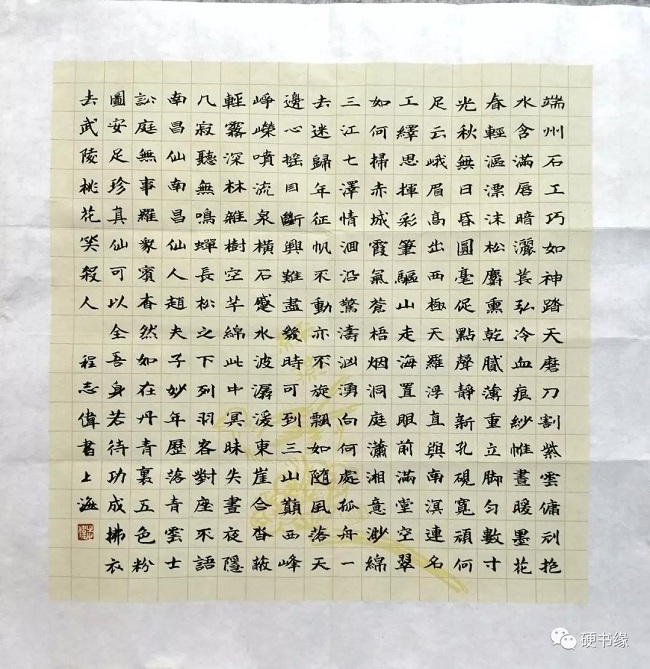 端州石工巧如神踏天磨刀割紫雲傭刓抱
水含滿唇暗灑萇弘冷血痕紗帷晝暖墨花
春輕漚漂沫松麝熏乾膩薄重立脚勻數寸
光秋無日昏圓毫促點聲靜新孔硯寬頑何
足云峨眉高出西極天羅浮直與南溟連名
工繹思揮彩筆驅山走海置眼前滿堂空翠
如何掃赤城霞氣蒼梧烟洞庭瀟湘意渺綿
三江七澤情洄沿驚濤洶湧向何處孤舟一
去迷歸年征帆不動亦不旋飄如隨風落天
邊心搖目斷興難盡幾時可到三山巔西峰
崢嶸噴流泉橫石蹙水波潺湲東崖合沓蔽
輕霧深林雜樹空芊綿此中冥昧失晝夜隱
几寂聽無鳴蟬長松之下列羽客對座不語
南昌仙南昌仙人趙夫子妙年歷落青雲士
訟庭無事羅眾賓杳然如在丹青裏五色粉
圖安足珍真仙可以全吾身若待功成拂衣
去武陵桃花笑殺人 程志偉書上海
硬书缘